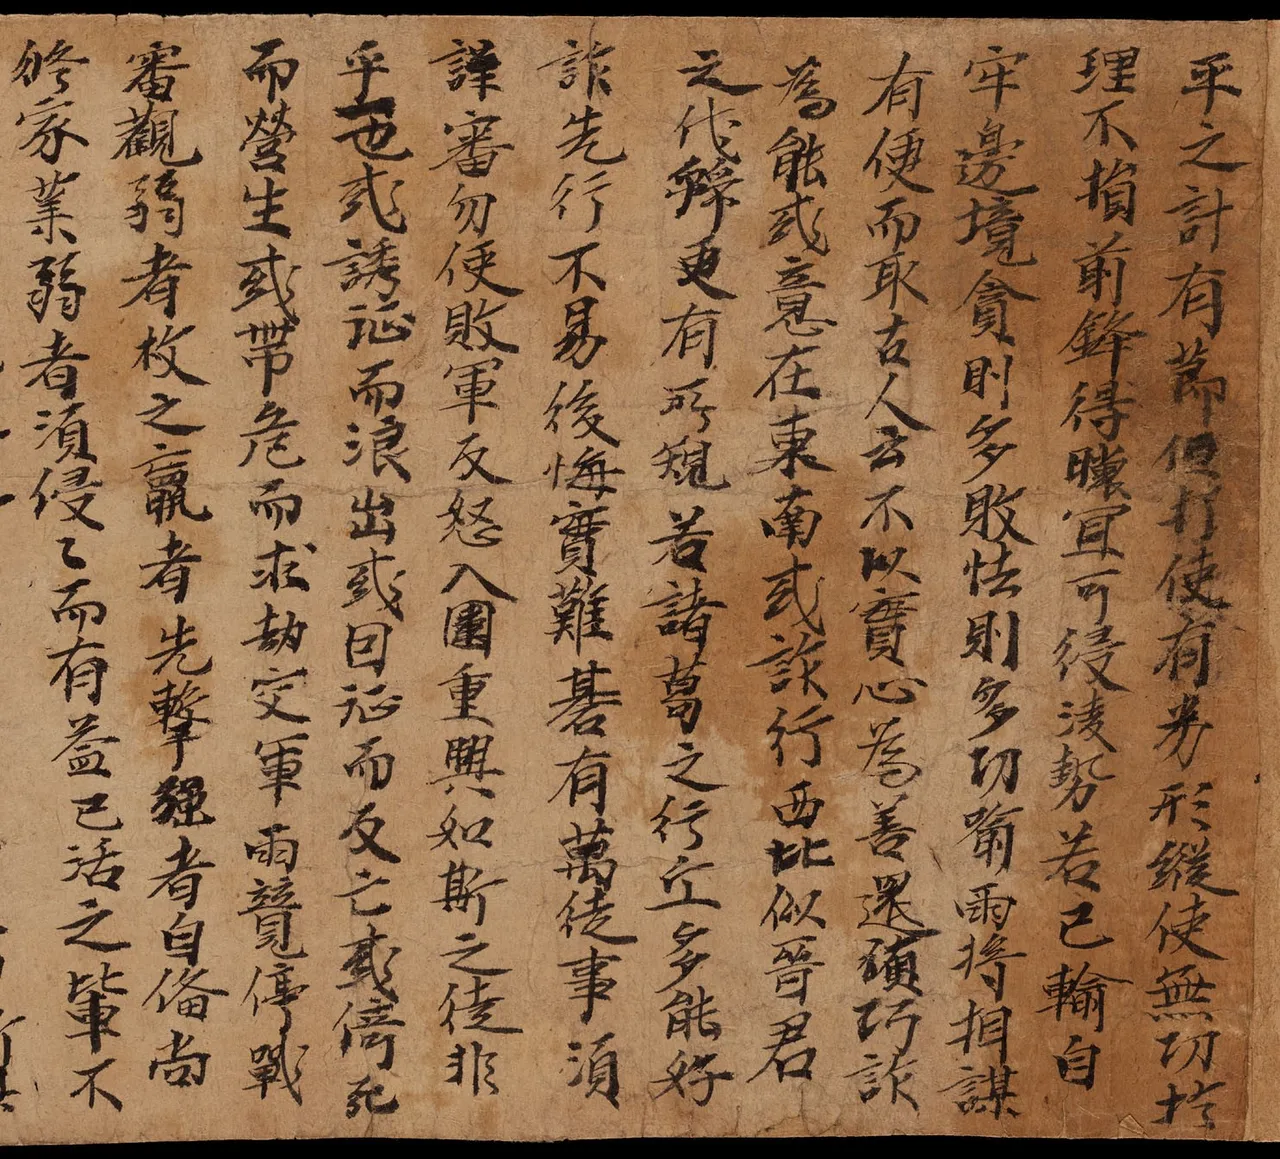 平之計有節但打使有劣形縱使無功於
理不損前鋒得暖宜可侵淩勢若已輸自
牢邊境貪則多敗怯則多功喻雨將相謀
有便而取古人云不以實心為善還須巧詐
為能或意在東南或詐行西北似晉君
之伐虢更有所規若諸葛之行丘多能好
詐先行不易後悔實難碁有萬徒事須
謹審勿使敗軍反怒入圍重興如斯之徒非
乎一也或誘征而浪出或因征而反亡或倚死
而營生或帶危而求劫交軍雨競停戰
審觀弱者枚之羸者先擊強者自俻尚
修家業弱者須侵〻而有益已活之輩不